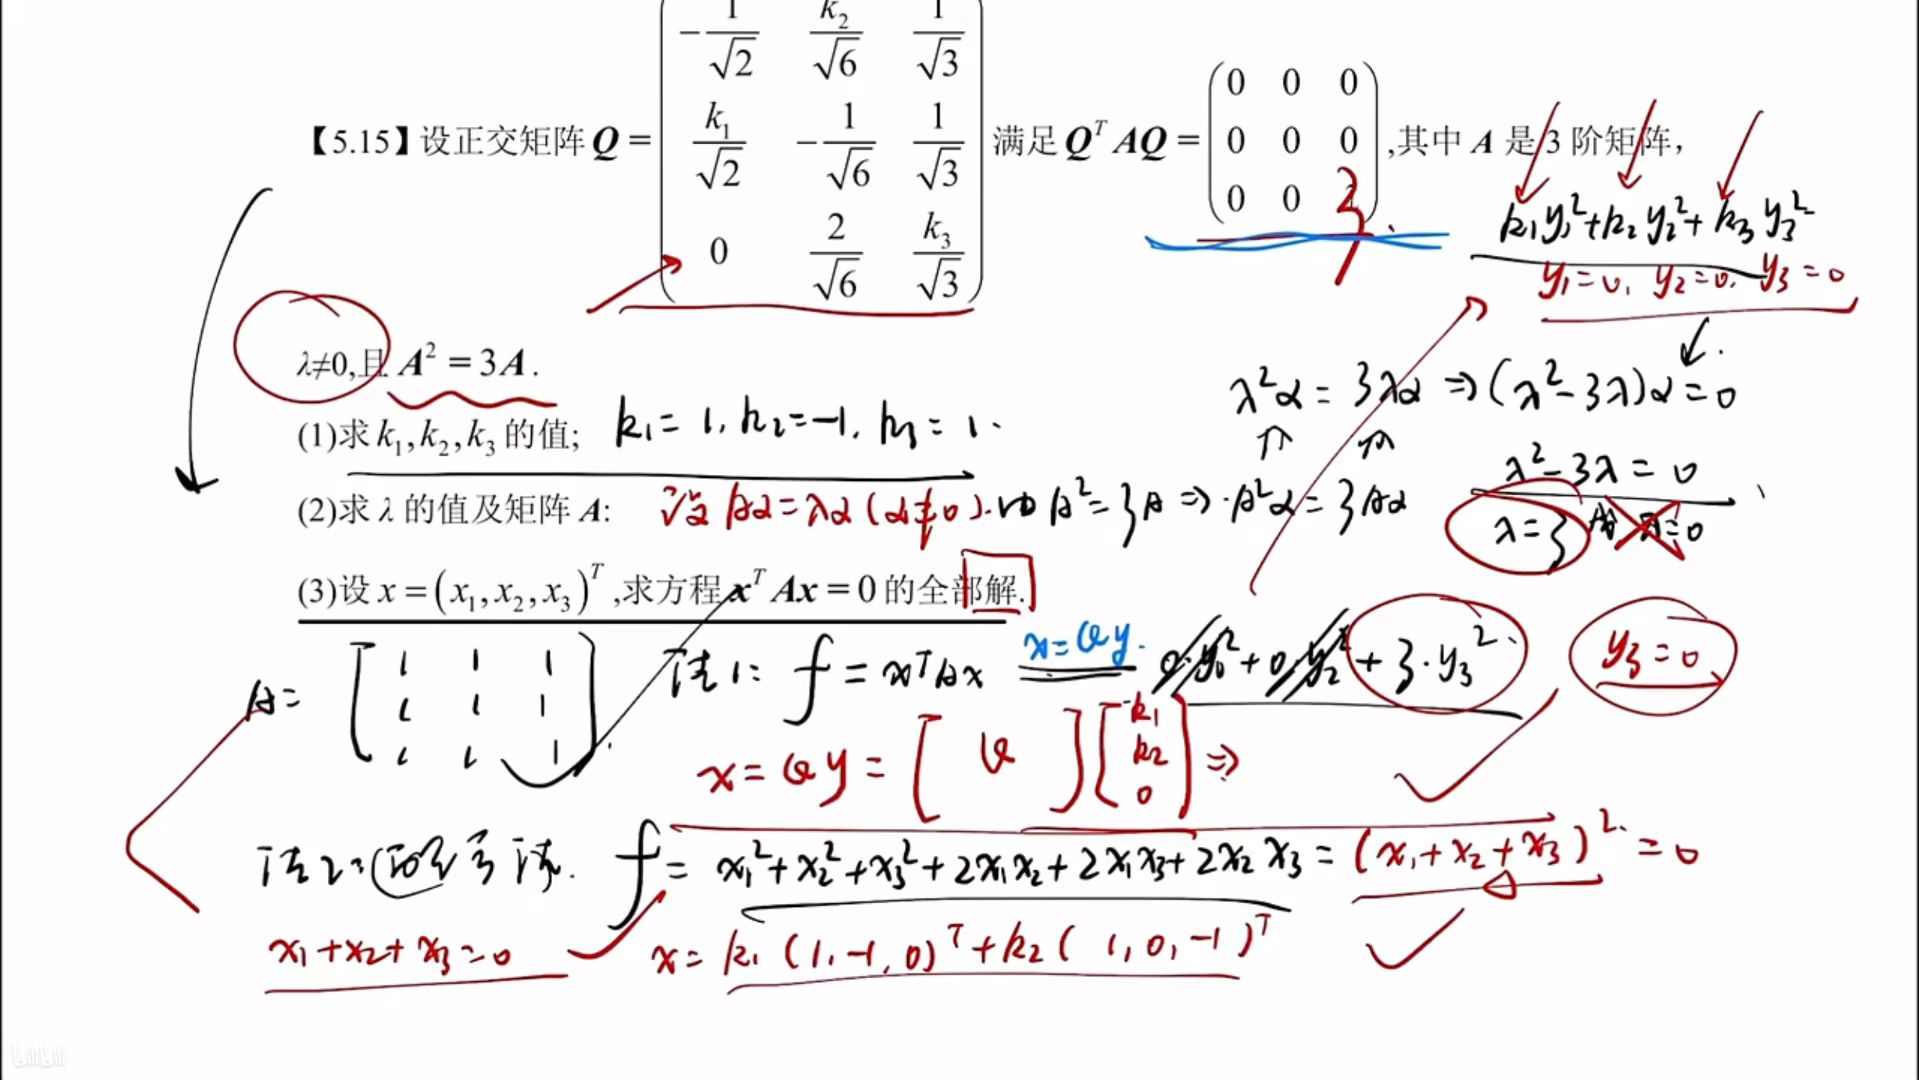 【5.15】设正交矩阵 Q = ( -1/√2 k₂/√6 1/√3 ; k₁/√2 -1/√6 1/√3 ; 0 2/√6 k₃/√3 ) 满足 QᵀAQ = ( 0 0 0 ; 0 0 0 ; 0 0 3 ) ,其中 A 是 3 阶矩阵,
k₁y₁²+k₂y₂²+k₃y₃²
y₁=0, y₂=0, y₃=0
λ≠0,且 A² = 3A .
λ²α = 3λα ⇒ (λ²-3λ)α = 0
(1)求 k₁,k₂,k₃ 的值; k₁=1, k₂=-1, k₃=1.
λ²-3λ=0
(2)求 λ 的值及矩阵 A: 设 Aα=λα (α≠0). 由 A²=3A ⇒ A²α=3Aα
λ=3 λ=0
(3)设 x = (x₁,x₂,x₃)ᵀ ,求方程 xᵀAx = 0 的全部解.
A = [ 1 1 1 ; 1 1 1 ; 1 1 1 ].
法1: f = xᵀAx x=Qy. 0·y₁²+0·y₂²+3·y₃² y₃=0
x=Qy= [ Q ] [ k₁ ; k₂ ; 0 ] ⇒
法2: 法. f = x₁²+x₂²+x₃²+2x₁x₂+2x₁x₃+2x₂x₃ = (x₁+x₂+x₃)² = 0
x₁+x₂+x₃=0 x= k₁(1,-1,0)ᵀ+k₂(1,0,-1)ᵀ